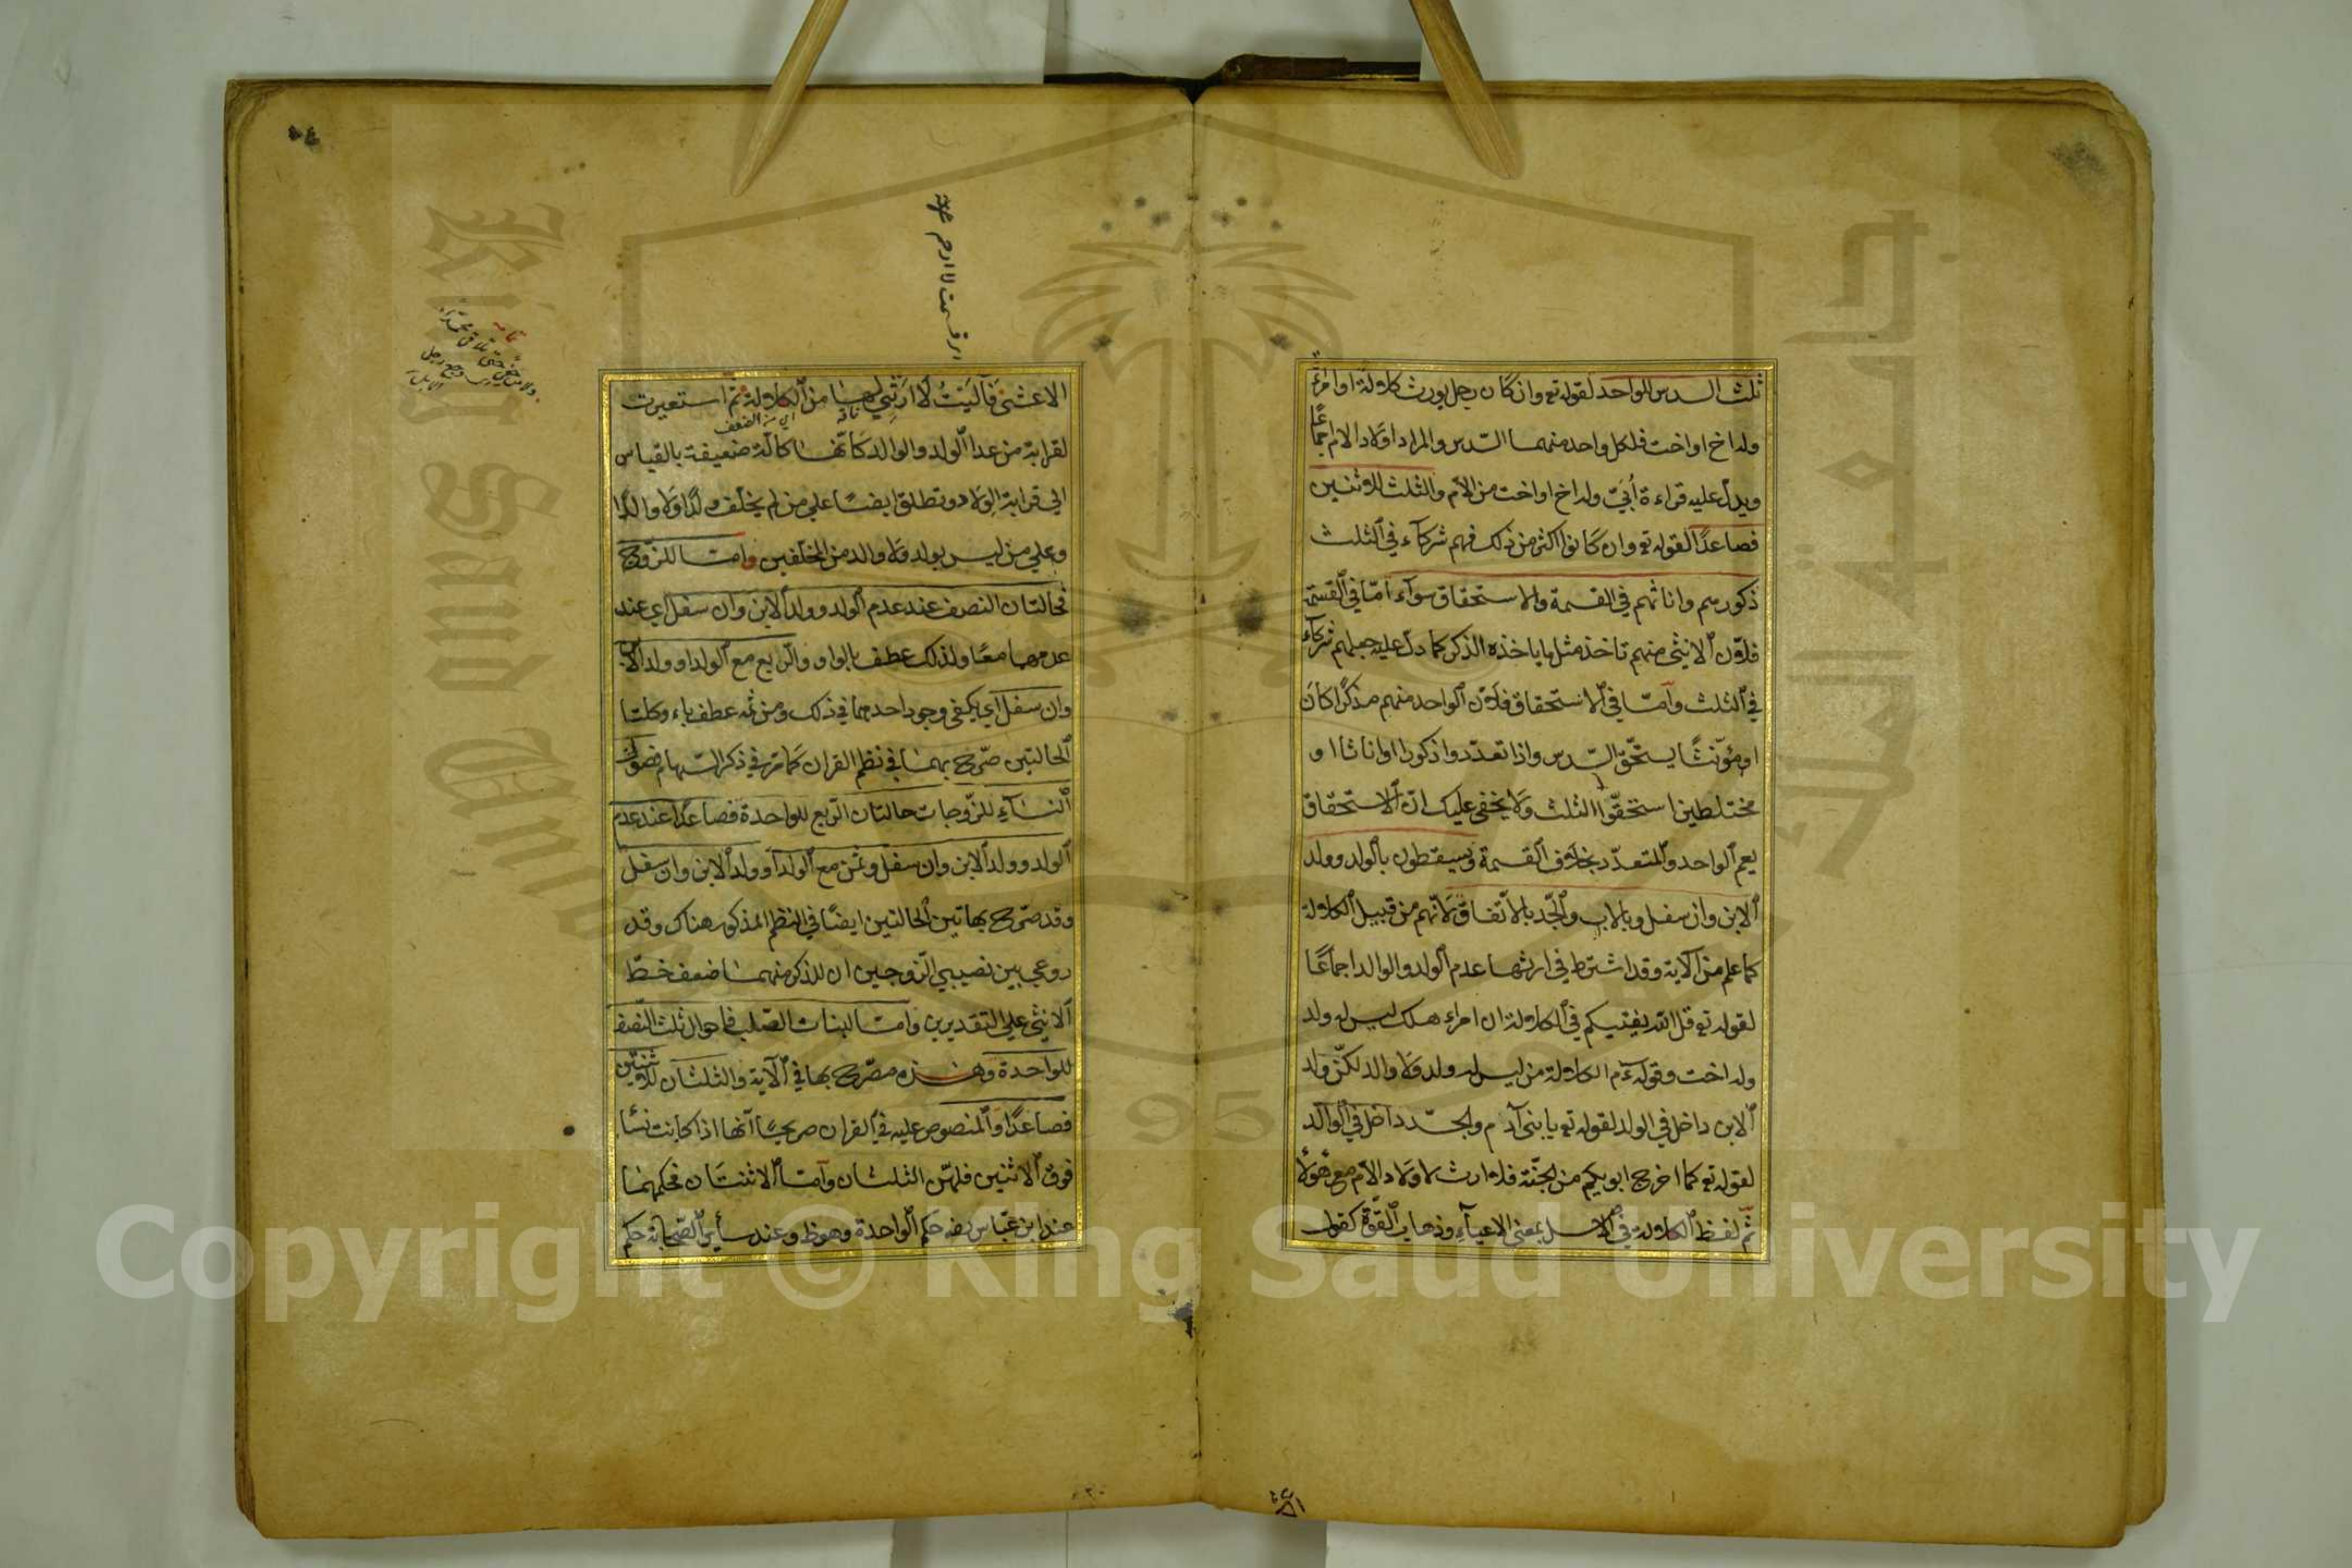 ثلث السدس للواحد لقوله تع وان كان رجل يورث كلالة او امراة
وله اخ او اخت فلكل واحد منهما السّدس والمراد اولاد الام اجماعًا
ويدل عليه قراءة أُبَيّ وله اخ او اخت من الام والثلث للاثنين
فصاعدًا لقوله تع وان كانوا اكثر من ذلك فهم شركآء في الثلث
ذكورهم واناثهم في القسمة والاستحقاق سوآء أمّا في القسمة
فلانّ الانثى منهم تاخذ مثل ما ياخذه الذكر كما دلّ عليه جعلهم شركآء
في الثلث وأمّا في الاستحقاق فلانّ الواحد منهم مذكرًا كان
او مؤنّثًا يستحقّ السّدس واذا تعدّدوا ذكورا او اناثا او
مختلطين استحقّوا الثلث ولا يخفى عليك انّ الاستحقاق
يعم الواحد والمتعدّد بخلاف القسمة ويسقطون بالولد وولد
الابن وان سفل وبالاب والجّد بالاتّفاق لانّهم من قبيل الكلالة
كما علم من الآية وقد اشترط في ارثها عدم الولد والوالد اجماعًا
لقوله تع قل الله يفتيكم في الكلالة ان امراء هلك ليس له ولد
وله اخت وقوله عم الكلالة من ليس له ولد ولا والد لكنّ ولد
الابن داخل في الولد لقوله تع يا بنى آدم والجدّ داخل في الوالد
لقوله تع كما اخرج ابويكم من الجنّة فلا ارث لاولاد الام مع هؤلاء
ثمّ لفظ الكلالة في الاصل بمعنى الاعيآء وذهاب القوّة كقول
الاعشى فآليَتُ لا ارَثِي لها من الكلالة ثم استعيرت
ناقة اي من الضعف
لقرابة من عدا الولد والوالد كأنّها كالّة ضعيفة بالقياس
الى قرابة الولاد وتطلق ايضًا على من لم يخلّف ولدًا ولا والدًا
وعلى من ليس بولد ولا والد من المخلّفين وامّا للزّوج
فحالتان النصف عند عدم الولد وولد الابن وان سفل اي عند
عدمهما معًا ولذلك عطف بالواو والرّبع مع الولد او ولد الابن
وان سفل اي يكفي وجود احدهما في ذلك ومن ثمّه عطف باء وكلتا
الحالتين صرّح بهما في نظم القران كما مّر في ذكر السّهام فصل في
النسآء للزّوجات حالتان الرّبع للواحدة فصاعدًا عند عدم
الولد وولد الابن وان سفل وثمن مع الولد أو ولد الابن وان سفل
وقد صّرح بهاتين الحالتين ايضًا في النظم المذكور هناك وقد
روعي بين نصيبي الزوجين ان للذكر منهما ضعف حظّ
الانثى على التقديرين وامّا لبنات الصّلب فاحوال ثلث النّصف
للواحدة وهذه مصّرح بها في الآية والثلثان للاثنتين
فصاعدًا والمنصوص عليه في القران صريحًا آنها اذا كانت نسا
فوق الاثنين فلهّن الثلثان وأمّا الاثنتان فحكمهما
عند ابن عبّاس رضه حكم الواحدة وهو ظ وعند سائر الصّحابة حكم
Copyright © King Saud University